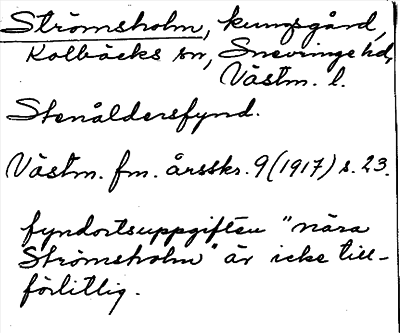 Strömsholm, kungsgård,
Kolbäcks sn, Snevringe hd,
Västm. l.
Stenåldersfynd.
Västm. fm. årsskr. 9 (1917) s. 23.
fyndortsuppgiften "nära
Strömsholm" är icke till-
förlitlig.